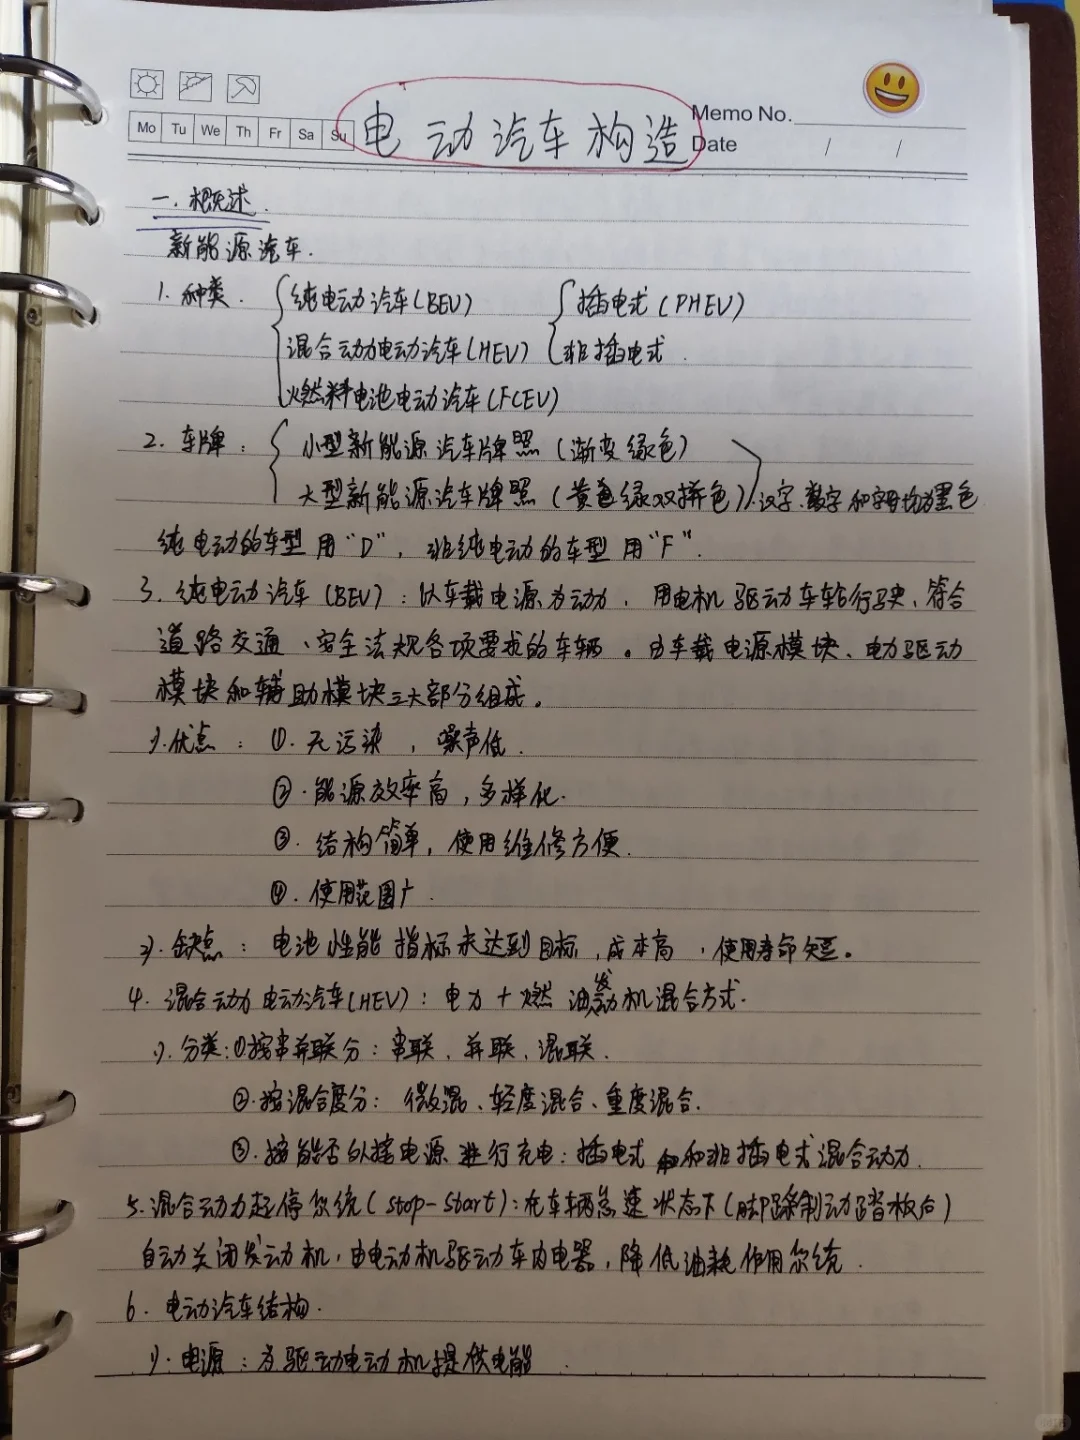 Mo Tu We Th Fr Sa Su
电动汽车构造
Memo No.
Date / /
一.概述.
新能源汽车.
1.种类. 纯电动汽车(BEV) 插电式(PHEV)
混合动力电动汽车(HEV) 非插电式.
燃料电池电动汽车(FCEV)
2.车牌: 小型新能源汽车牌照(渐变绿色)
大型新能源汽车牌照(黄色绿双拼色).汉字、数字和字母均为黑色
纯电动的车型用"D",非纯电动的车型用"F".
3.纯电动汽车(BEV):以车载电源为动力,用电机驱动车轮行驶,符合
道路交通、安全法规各项要求的车辆。由车载电源模块、电力驱动
模块和辅助模块三大部分组成。
1).优点:①.无污染,噪声低.
②.能源效率高,多样化.
③.结构简单,使用维修方便.
④.使用范围广.
2).缺点:电池性能指标未达到目标,成本高,使用寿命短。
4.混合动力电动汽车(HEV):电力+燃油发动机混合方式.
1).分类:①按串并联分:串联、并联、混联.
②.按混合度分:微混、轻度混合、重度混合.
③.按能否外接电源进行充电:插电式和非插电式混合动力.
5.混合动力起停系统(stop-start):在车辆怠速状态下(脚踩制动踏板后)
自动关闭发动机,由电动机驱动车内电器,降低油耗作用系统.
6.电动汽车结构.
1).电源:为驱动电动机提供电能.